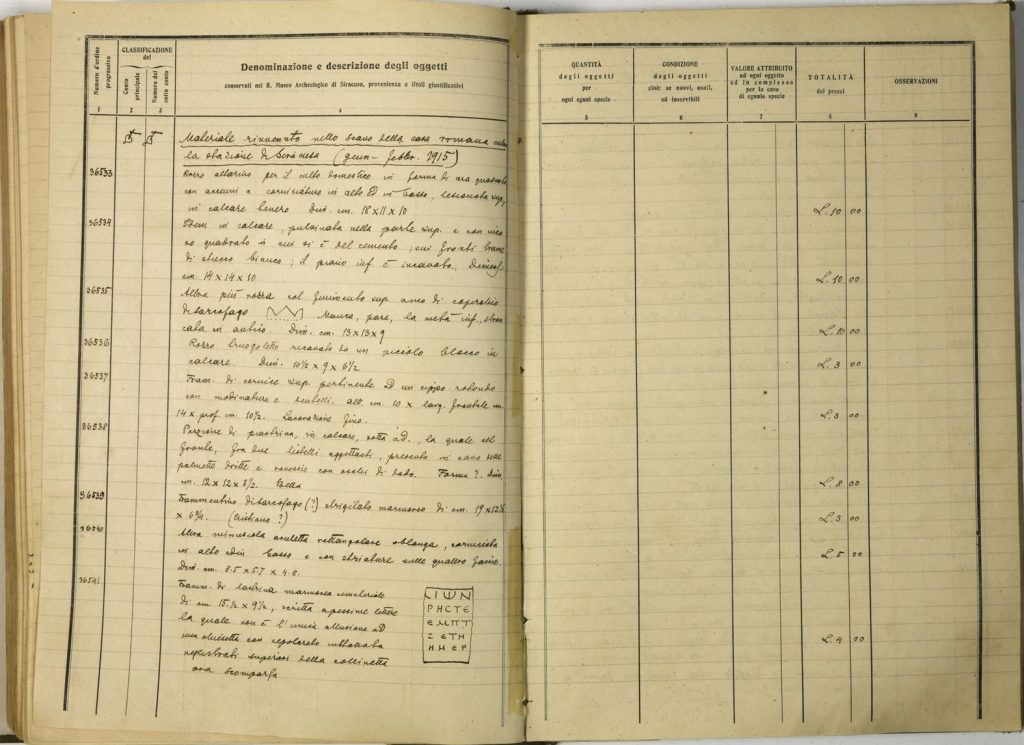 Numero d'ordine progressivo
CLASSIFICAZIONE
del
Conto principale
Numero del sotto conto
Denominazione e descrizione degli oggetti
conservati nel R. Museo Archeologico di Siracusa, provenienza e titoli giustificativi
1 2 3 4
Materiale rinvenuto nello scavo della casa romana
la stazione di Siracusa (genn-febbr. 1915)
36533 Rozzo altarino per il culto domestico in forma di ara quadrata
con accenni a corniciature in alto ed in basso, lesionata sup.
in calcare tenero Dim. cm. 18 x 11 x 10
36534 Idem in calcare, pulvinata nella parte sup. e con inca
vo quadrato in cui vi è del cemento; sui fronti tracce
di stucco bianco; il piano inf. è incavato. Dimens.
cm. 14 x 14 x 10
36535 Altra più rozza col finimento sup. a mo' di coperchio
di sarcofago Manca, pare, la metà inf., stron
cata in antico. Dim. cm. 13 x 13 x 9
36536 Rozzo truogoletto ricavato da un piccolo blocco in
calcare. Dim. 10½ x 9 x 6½
36537 Fram. di cornice sup. pertinente ad un cippo rotondo
con modinature e dentelli. alt. cm. 10 x larg. frontale cm.
14 x prof. cm. 10½. Lavorazione fine.
36538 Porzione di in calcare, rotta a d., la quale nel
fronte, fra due listelli aggettanti, presenta in cavo delle
palmette dritte e rovescie con occhi di dado. Forma? Dim
cm. 12 x 12 x 8½ Bella
36539 Frammentino di sarcofago (?) strigilato marmoreo di cm. 19 x 13½
x 6¾. (cristiano?)
36540 Altra minuscola aruletta rettangolare oblonga, corniciata
in alto ed in basso e con striature sulle quattro faccie.
Dim. cm. 8.5 x 5.7 x 4.8.
36541 Framm. di lastrina marmorea cimiteriale
di cm. 15.½ x 9½, scritta a pessime lettere
la quale non è l'unica allusione ad
una chiesetta con sepolcreto
negli strati superiori della collinetta
ora scomparsa
ΙΩΝ
ΡΗϹΤΕ
ΕΜΠΤ
ΕΤΗ
ΗΜΕΡ
QUANTITÀ
degli oggetti
per
ogni egual specie
5
CONDIZIONE
degli oggetti
cioè: se nuovi, usati,
od inservibili
6
VALORE ATTRIBUITO
ad ogni oggetto
ed in complesso
per le cose
di eguale specie
7
TOTALITÀ
dei prezzi
8
OSSERVAZIONI
9
L. 10 00
L. 10 00
L. 10 00
L. 3 00
L. 3 00
L. 8 00
L. 3 00
L. 5 00
L. 4 00